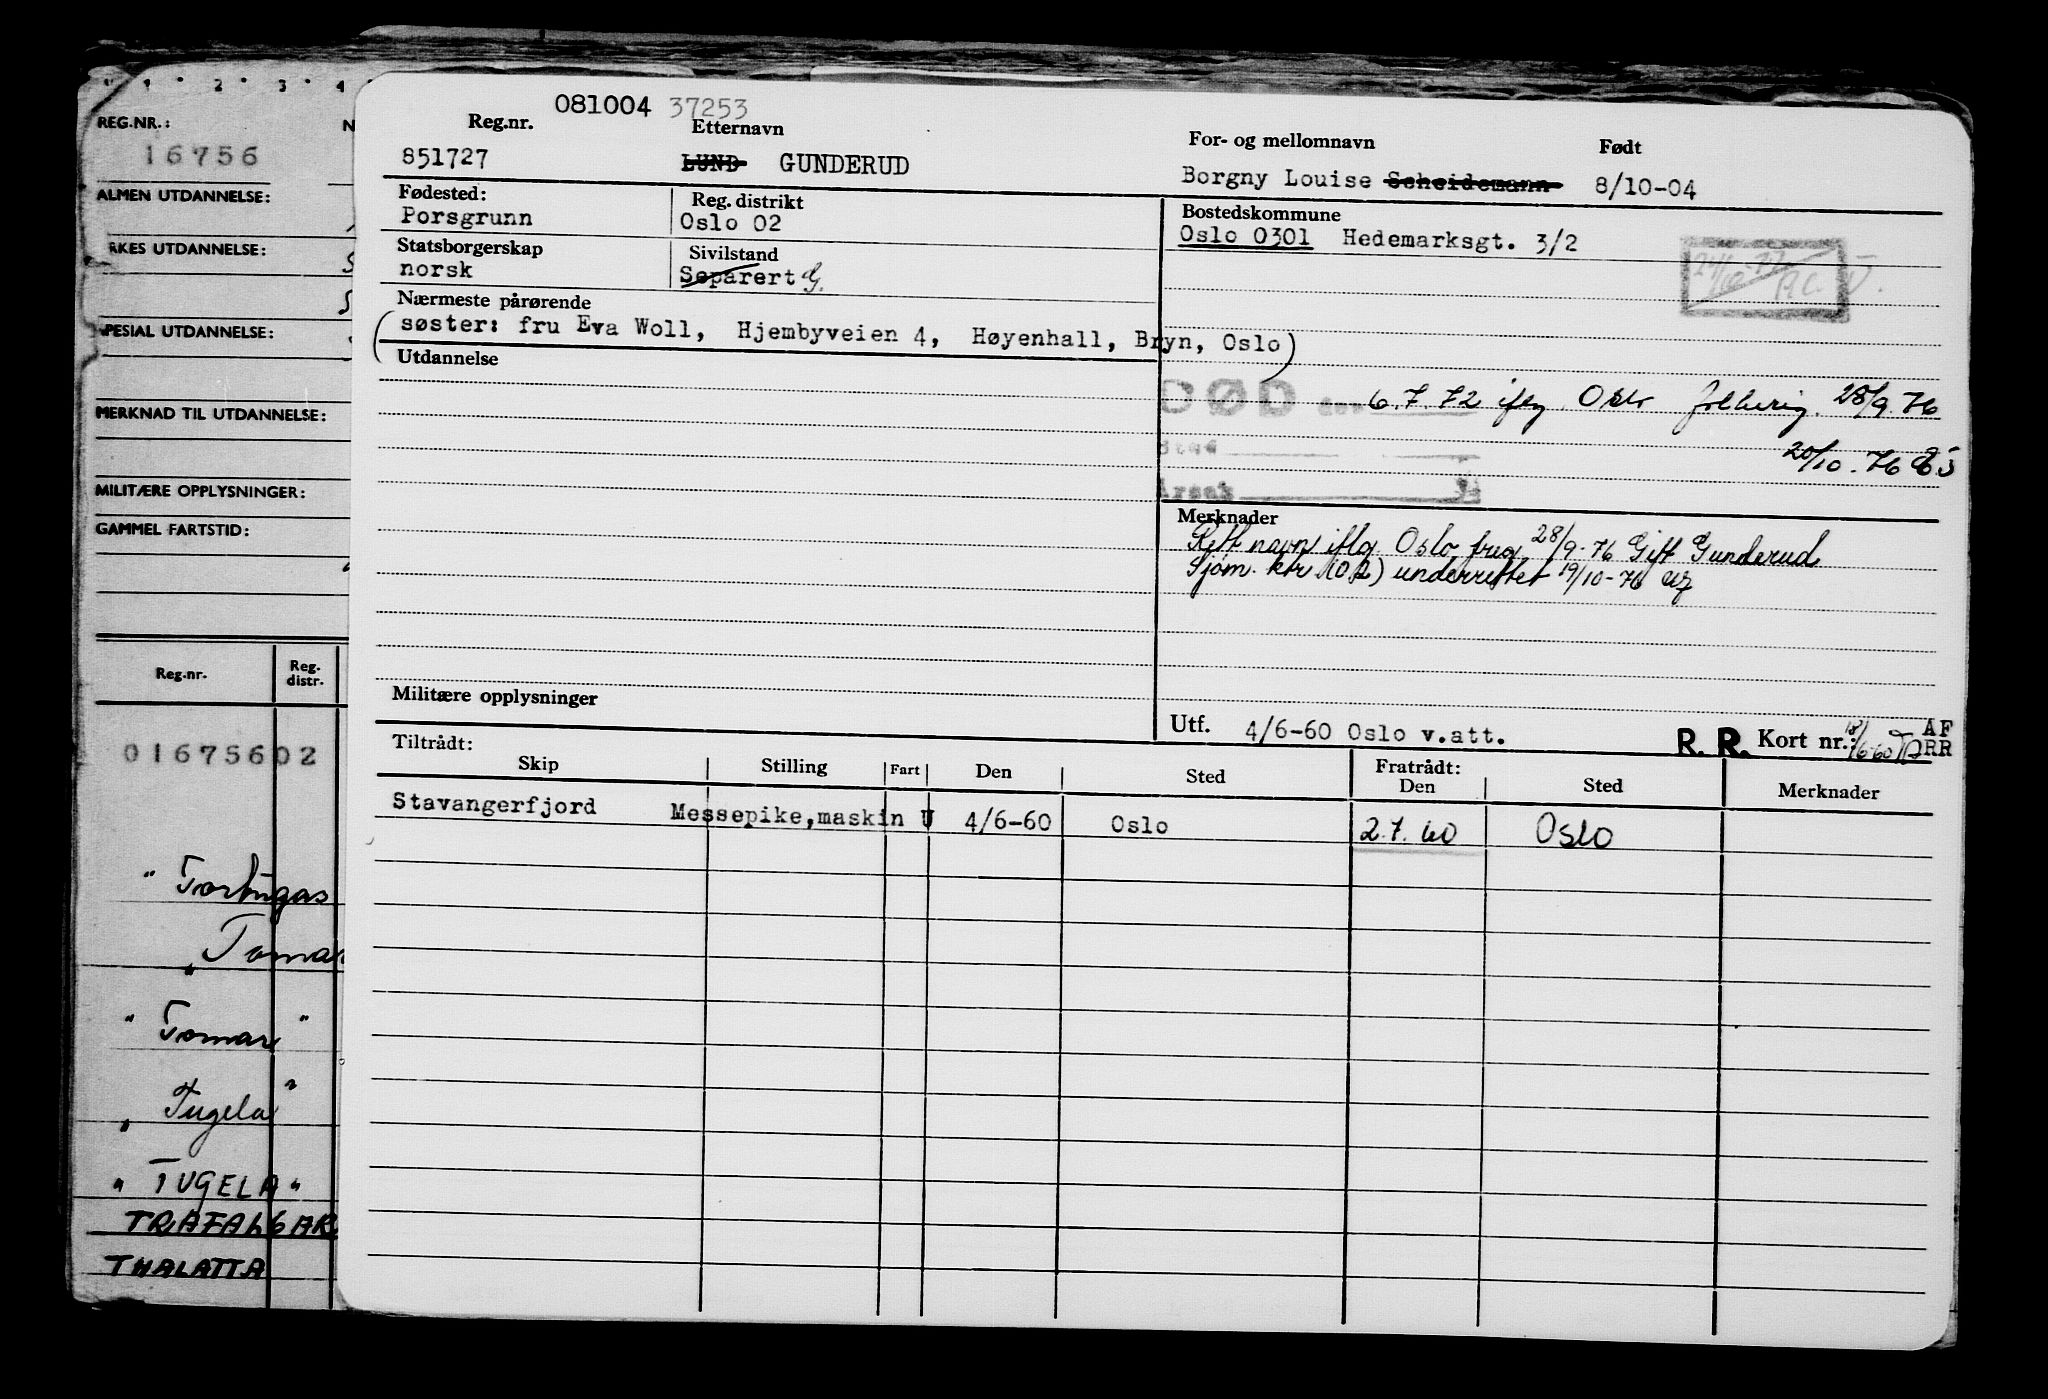 1 2 3 4
REG.NR.: N
16756
ALMEN UTDANNELSE:
RKES UTDANNELSE: S
S
PESIAL UTDANNELSE:
MERKNAD TIL UTDANNELSE:
MILITÆRE OPPLYSNINGER:
GAMMEL FARTSTID:
Reg.nr. Reg. distr.
01675602
" Tortugas
" Tomar
" Tomar "
" Tugela "
" TUGELA "
TRAFALGAR
THALATTA
081004 37253
Reg.nr. Etternavn For- og mellomnavn Født
851727 LUND GUNDERUD Borgny Louise Scheidemann 8/10-04
Fødested: Reg. distrikt Bostedskommune
Porsgrunn Oslo 02 Oslo 0301 Hedemarksgt. 3/2
Statsborgerskap Sivilstand
norsk Separert G.
Nærmeste pårørende
(søster: fru Eva Woll, Hjembyveien 4, Høyenhall, Bryn, Oslo)
Utdannelse
DØD den 6.7.72 iflg Oslo 28/9.76
Sted 20/10-76
Årsak
Merknader
Rett navn iflg. Oslo freg. 28/9-76 Gift Gunderud
Sjøm. ktr (02) underrettet 19/10-76
Militære opplysninger
Utf. 4/6-60 Oslo v.att. R. R. Kort nr.: 18/6-60 AF RR
Tiltrådt: Fratrådt:
Skip Stilling Fart Den Sted Den Sted Merknader
Stavangerfjord Messepike,maskin U 4/6-60 Oslo 2.7.60 Oslo